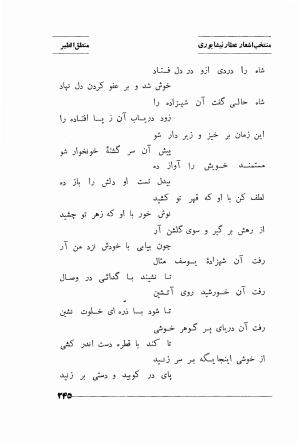 منتخب اشعار عطار نیشابوری
منطق الطیر
شاه را دردی ازو در دل فتاد
خوش شد و بر عفو کردن دل نهاد
شاه حالی گفت آن شهزاده را
زود دریاب آن ز پا افتاده را
این زمان بر خیز و زیر دار شو
پیش آن سر گشتهٔ خونخوار شو
مستمند خویش را آواز ده
بیدل تست او دلش را باز ده
لطف کن با او که قهر تو کشید
نوش خور با او که زهر تو چشید
از رهش بر گیر و سوی گلشن آر
چون بیایی با خودش نزد من آر
رفت آن شهزادهٔ یوسف مثال
تا نشیند با گدائی در وصال
رفت آن خورشید روی آتشین
تا شود با ذره‌ای خلوت نشین
رفت آن دریای پر گوهر خوشی
تا کند با قطره دست اندر کشی
از خوشی اینجایگه بر سر زنید
پای در کوبید و دستی بر زنید
۲۴۵